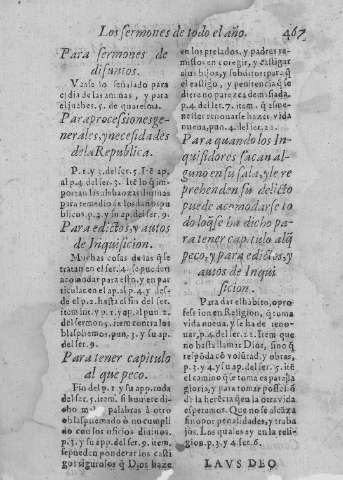 Los sermones de todo el año. 467
Para sermones de
difuntos.
Vease lo señalado para
el dia de las animas, y para
el jueves. 5. de quaresma.
Para processiones ge-
nerales, y necesidades
de la Republica.
P. 1. y 2. del ser. 5. Itẽ ap.
al p. 4. del ser. 3. Itẽ lo q̃ im-
portan las alabanzas diuinas
para remedio de los daños pu
blicos. p. 3. y su ap. del ser. 9.
Para edictos, y autos
de Inquisicion.
Muchas cosas de las q̃ se
tratan en el ser. 4. se pueden
acomodar para esto, y en par
ticular en el ap. al p. 4. y des-
de el p. 2. hasta el fin del ser.
item int. y p. 1. y ap. al pun. 2.
del sermon 5. item contra los
blasfemos, pun. 3. y su ap.
del ser. 9.
Para tener capitulo
al que peco.
Fin del p. 1. y su app. toda
del ser. 5. item. si huuiere di-
cho malas palabras à otro
o blasfemado o no cumpli
do con los oficios diuinos.
p. 3. y su app. del ser. 9. item.
se pueden ponderar los casti
gos rigurosos q̃ Dios haze
en los prelados, y padres re-
missos en coregir, y castigar
a sus hijos, y subditos para q̃
el castigo, y penitencia q̃ se
diere no parezca demasiada.
p. 4. del ser. 7. item. q̃ a se-
neste es renouarse hazer vida
nueua, pun. 4. del ser. 22.
Para quando los In-
quisidores sacan al-
guno en su sala, y le re
prehenden su delicto
puede acomodarse to
do loq̃ se ha dicho pa-
ra tener capitulo alq̃
peco, y para edictos, y
autos de Inqui
sicion.
Para dar el habito, o pro-
fession en Religion, q̃ toma
vida nueua, y le ha de reno-
uar, p. 4. del ser. 22. Item que
no basta llamar Dios, sino q̃
respõda cõ volũtad, y obras,
p. 3. y 4. y su ap. del ser. 5. itẽ
el camino q̃ se toma es para la
gloria, y para tomar possesiõ
de la herẽcia q̃ en la otra vida
esperamos. Que no se alcãza
sino por penalidades, y traba
jos. Los quales ay en la reli-
gion. p. 3. y 4. ser. 6.
LAVS DEO